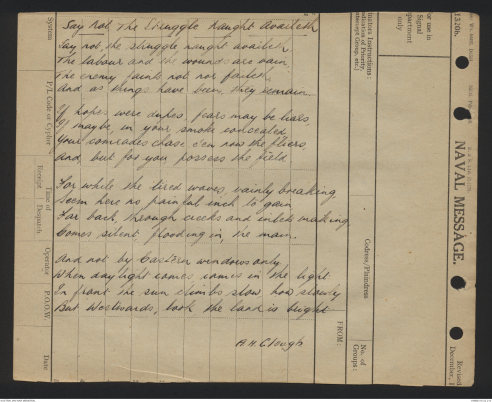 Say Not The Struggle Naught Availeth
Say not the struggle naught availeth
The labour and the wounds are vain
The enemy faints not nor faileth
And as things have been, they remain.
If hopes were dupes, fears may be liars
It may be, in your smoke concealed
Your comrades chase e'en now the fliers
And, but for you possess the field
For while the tired waves, vainly breaking
Seem here no painful inch to gain
Far back, through creeks and inlets making
Comes silent flooding in, the main.
And not by Eastern windows only
When daylight comes, comes in the light
In front the sun climbs slow, how slowly
But Westwards, look the land is bright
A.H. Clough
System
P/L Code or Cypher
Time of
Receipt Despatch
Operator
P.O.O.W.
Date
FROM:
Codress/Plaindress
No. of
Groups:
for use in
Signal
Department
only
NAVAL MESSAGE.
Revised
December,